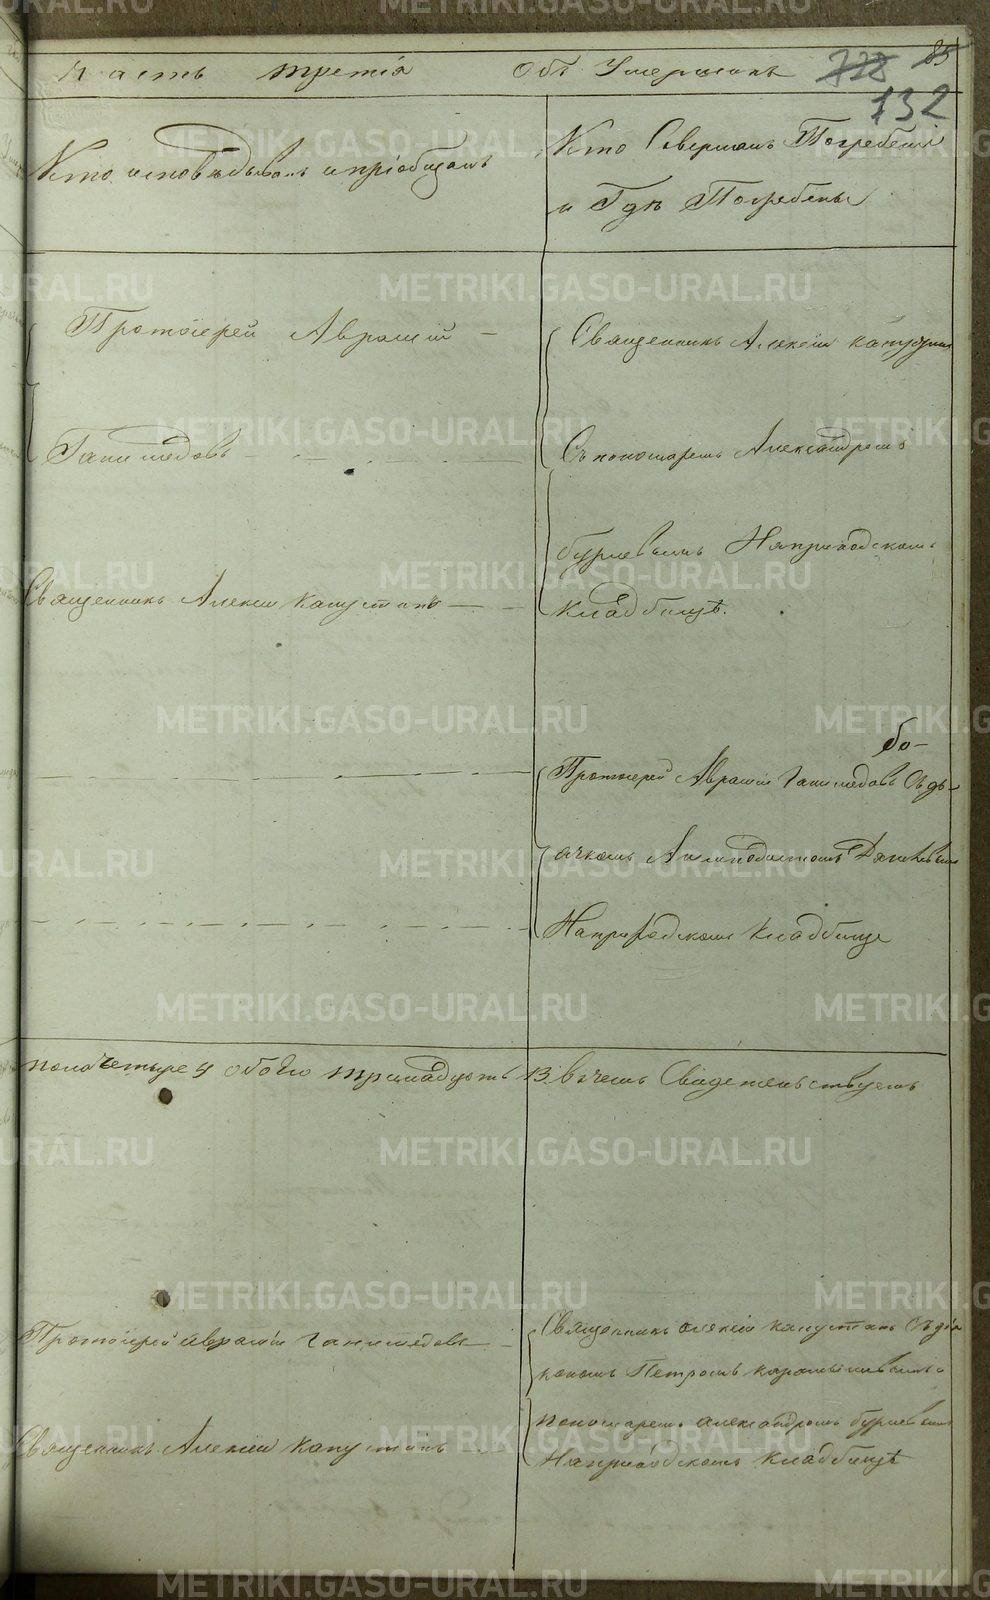 Часть третія Объ Умершихъ 778 85
132
Кто исповѣдывалъ и пріобщалъ
Кто Совершалъ Погребеніе
и Гдѣ Погребены
Протоіерей Аврамій
Ганимедовъ
Священникъ Алексій Капустинъ
Священникъ Алексій Капустинъ
Съ пономаремъ Александромъ
Бурцевымъ На приходскомъ
Кладбищѣ.
Протоіерей Аврамій Ганимедовъ Съ дь-
ячкомъ
На приходскомъ Кладбище
пола четыре 4 обоего тринадцать 13. в чемъ Свидетельствуемъ
Протоіерей Аврамій Ганимедовъ
Священникъ Алексій Капустинъ
Священникъ Алексій Капустинъ Съ діа-
кономъ Петромъ
пономаремъ Александромъ Бурцевымъ
На приходскомъ Кладбищѣ
METRIKI.GASO-URAL.RU